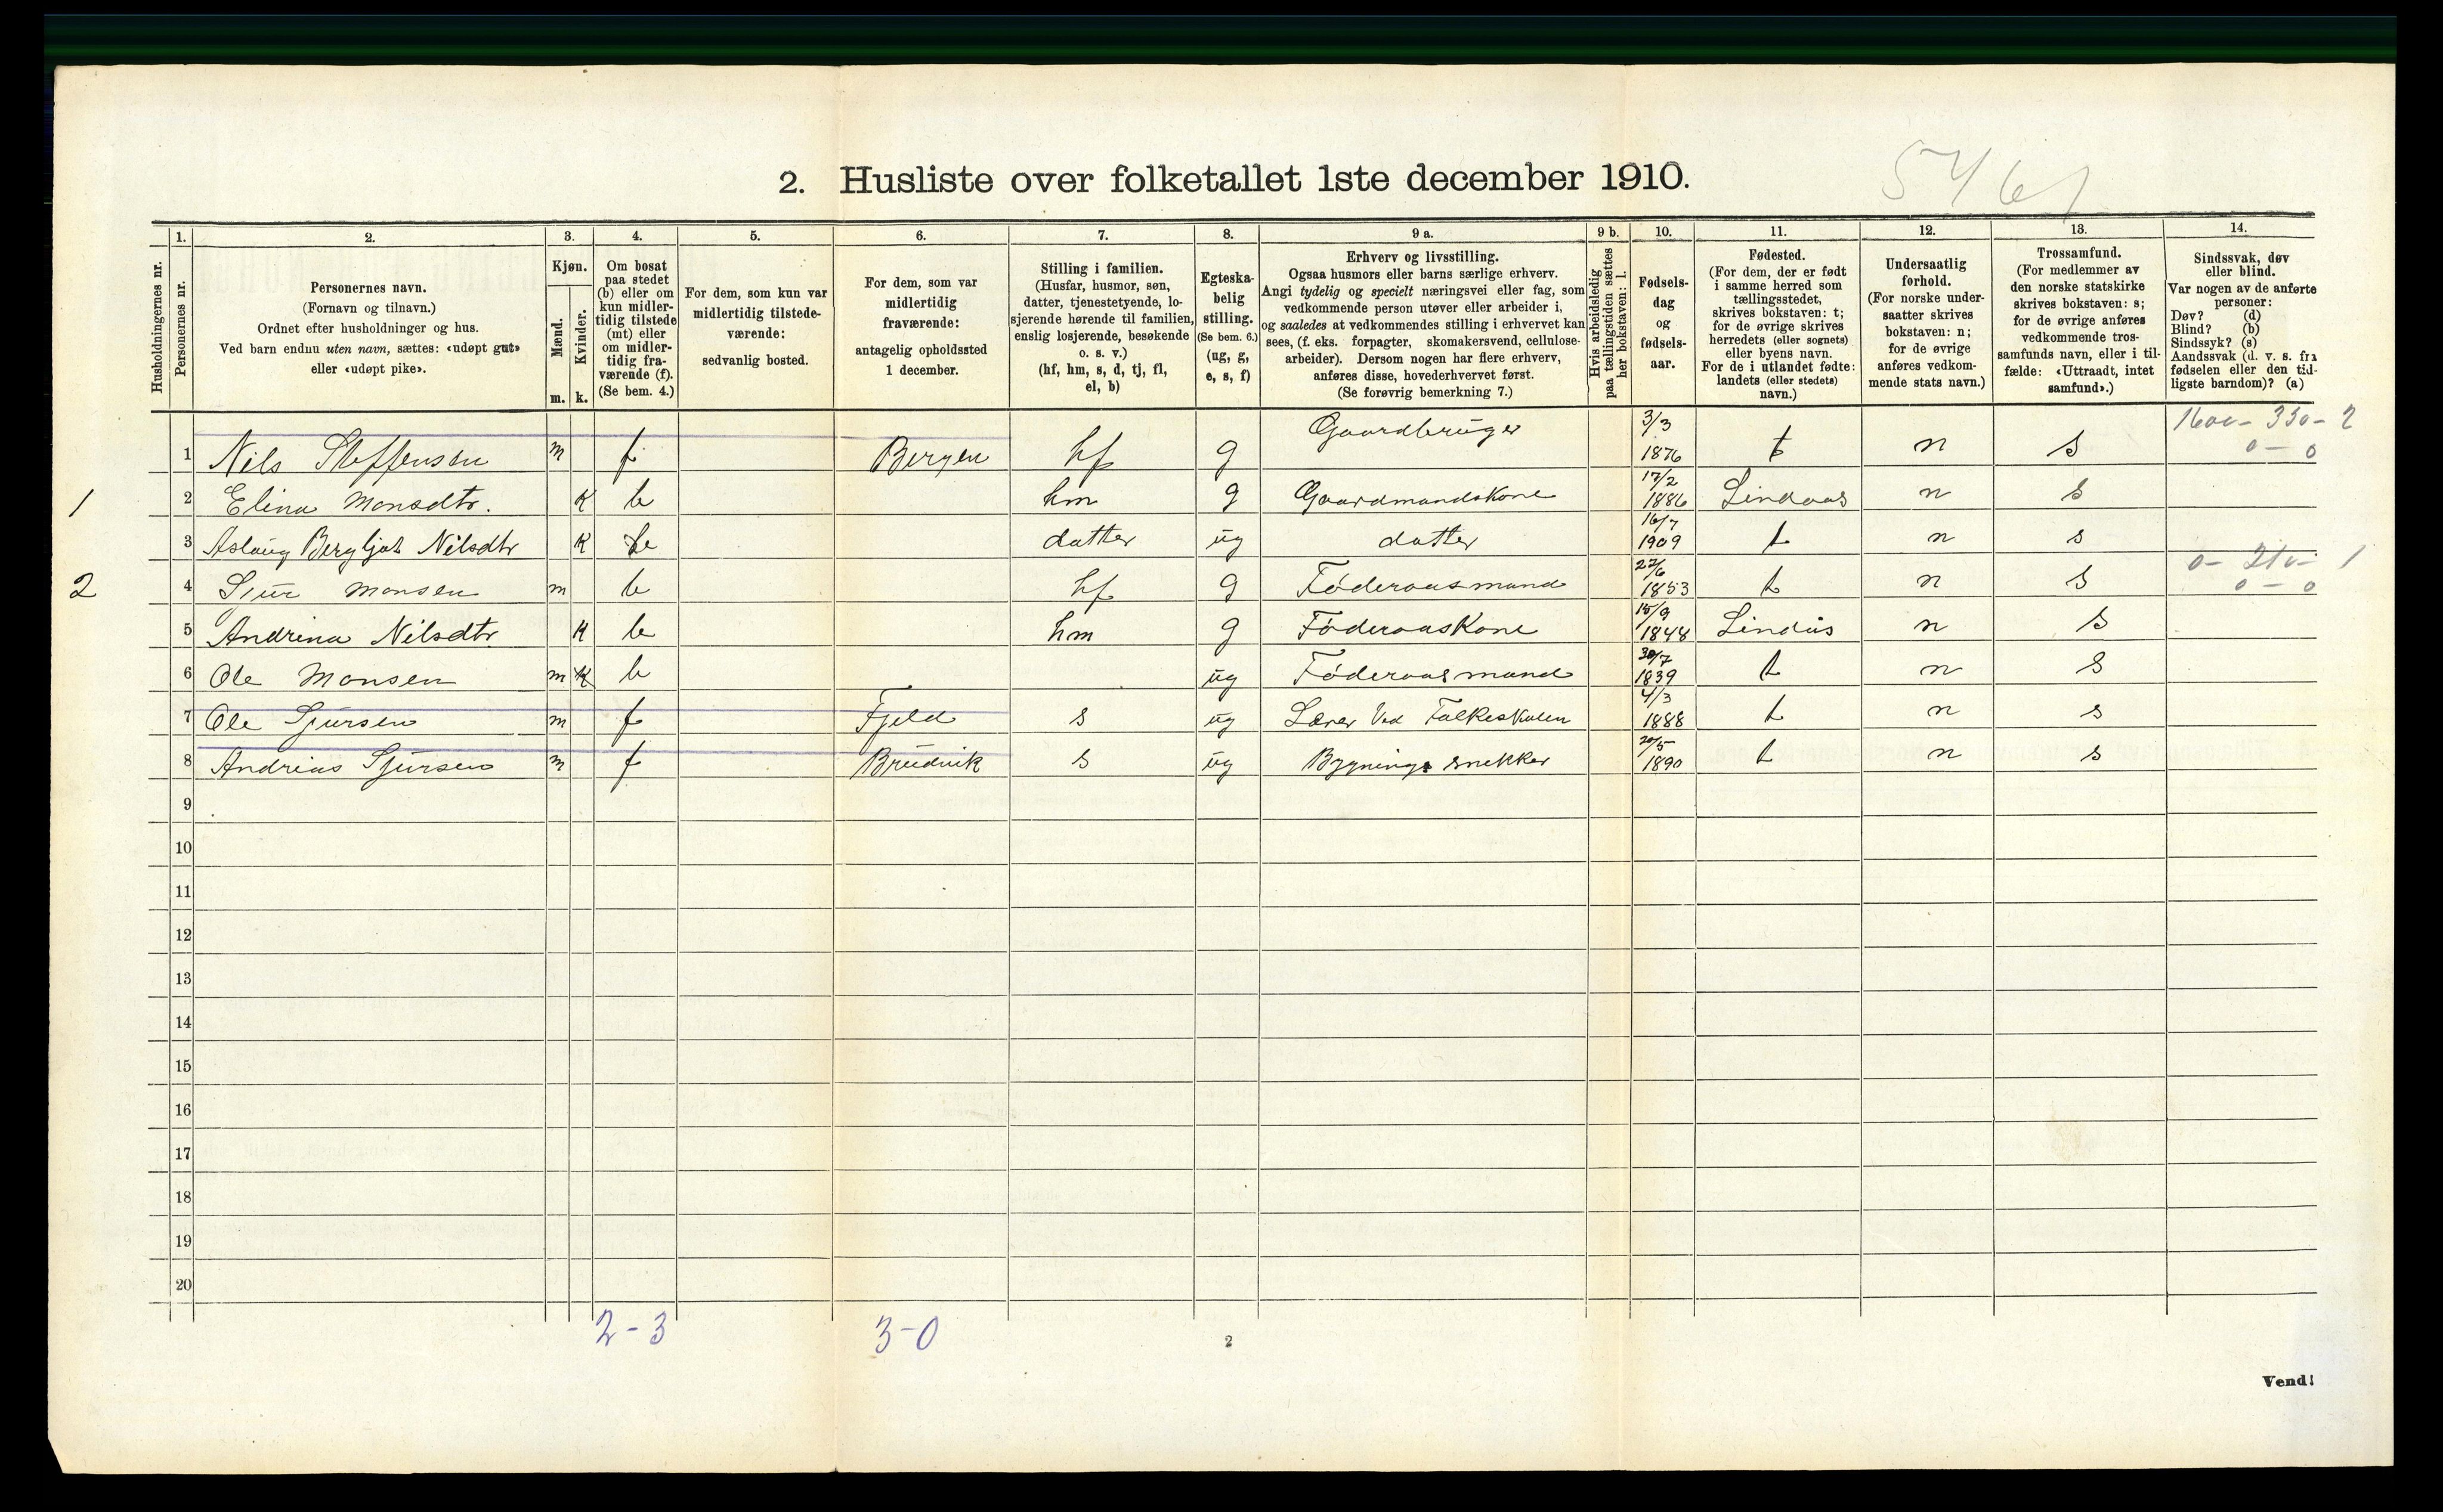 5461
2. Husliste over folketallet 1ste december 1910.
Husholdningernes nr.
1. Personernes nr.
2. Personernes navn.
(Fornavn og tilnavn.)
Ordnet efter husholdninger og hus.
Ved barn endnu uten navn, sættes: «udøpt gut»
eller «udøpt pike».
3. Kjøn.
Mænd. m.
Kvinder. k.
4. Om bosat
paa stedet
(b) eller om
kun midler-
tidig tilstede
(mt) eller
om midler-
tidig fra-
værende (f).
(Se bem. 4.)
5. For dem, som kun var
midlertidig tilstede-
værende:
sedvanlig bosted.
6. For dem, som var
midlertidig
fraværende:
antagelig opholdssted
1 december.
7. Stilling i familien.
(Husfar, husmor, søn,
datter, tjenestetyende, lo-
sjerende hørende til familien,
enslig losjerende, besøkende
o. s. v.)
(hf, hm, s, d, tj, fl,
el, b)
8. Egteska-
belig
stilling.
(Se bem. 6.)
(ug, g,
e, s, f)
9 a. Erhverv og livsstilling.
Ogsaa husmors eller barns særlige erhverv.
Angi tydelig og specielt næringsvei eller fag, som
vedkommende person utøver eller arbeider i,
og saaledes at vedkommendes stilling i erhvervet kan
sees, (f. eks. forpagter, skomakersvend, cellulose-
arbeider). Dersom nogen har flere erhverv,
anføres disse, hovederhvervet først.
(Se forøvrig bemerkning 7.)
9 b. Hvis arbeidsledig
paa tællingstiden sættes
her bokstaven: l.
10. Fødsels-
dag
og
fødsels-
aar.
11. Fødested.
(For dem, der er født
i samme herred som
tællingsstedet,
skrives bokstaven: t;
for de øvrige skrives
herredets (eller sognets)
eller byens navn.
For de i utlandet fødte:
landets (eller stedets)
navn.)
12. Undersaatlig
forhold.
(For norske under-
saatter skrives
bokstaven: n;
for de øvrige
anføres vedkom-
mende stats navn.)
13. Trossamfund.
(For medlemmer av
den norske statskirke
skrives bokstaven: s;
for de øvrige anføres
vedkommende tros-
samfunds navn, eller i til-
fælde: «Uttraadt, intet
samfund».)
14. Sindssvak, døv
eller blind.
Var nogen av de anførte
personer:
Døv? (d)
Blind? (b)
Sindssyk? (s)
Aandssvak (d. v. s. fra
fødselen eller den tid-
ligste barndom)? (a)
1 Nils Steffensen m f Bergen hf g Gaardbruger 3/3 1876 t n s 1600 - 330 - 2 0 - 0
1 2 Elina Monsdtr. K b hm g Gaardmandskone 17/2 1886 Lindaas n s
3 Aslaug Bergljot Nilsdtr K b datter ug datter 16/7 1909 t n s
2 4 Sjur Monsen m b hf g Föderaasmand 27/6 1853 t n s 0 - 210 - 1 0 - 0
5 Andrina Nilsdtr. K b hm g FöderaasKone 15/9 1848 Lindås n s
6 Ole Monsen m K b ug Föderaasmand 30/7 1839 t n s
7 Ole Sjursen m f Fjeld s ug Lærer Ved Folkeskolen 4/3 1888 t n s
8 Andrias Sjursen m f Brudvik s ug Bygnings snekker 20/5 1890 t n s
9
10
11
12
13
14
15
16
17
18
19
20
2-3 3-0
2
Vend!